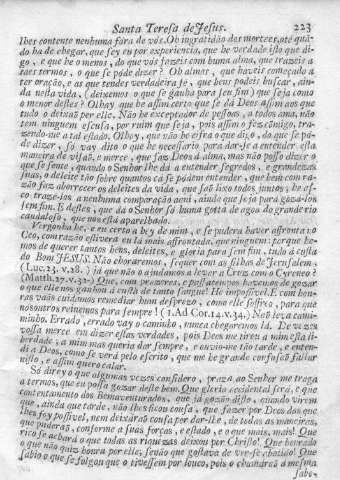 Santa Teresa de Jesus. 223
lhes contente nenhuma fóra de vós. Oh ingratidão dos mortaes, até quando ha de chegar, que sey eu por experiencia, que he verdade isto que digo
, e que he o menos, do que vós fazeis com huma alma, que trazeis a
taes termos, o que se póde dizer? Oh almas, que haveis começado a
ter oração, e as que tendes verdadeira fé, que bens podeis buscar, ainda
nesta vida, (deixemos o que se ganha para sem fim) que seja como
o menor destes? Olhay que he assim certo que se dá Deos assim aos que
tudo o deixaõ por elle. Não he exceptador de pessoas, a todos ama, não
tem ninguem escusa, por ruim que seja, pois assim o fez comigo, trazendo-me
a tal estado. Olhay, que não he cifra o que digo, do que se póde
dizer, só vay dito o que he necessario para dar-se a entender esta
maneira de visaõ, e merce, que faz Deos á alma, mas não posso dizer o
que se sente, quando o Senhor lhe dá a entender segredos, e grandezas
suas, o deleite tão sobre quantos cá se pódem entender, que bem com razão
faz aborrecer os deleites da vida, que saõ lixo todos juntos, he asco
traze-los a nenhuma comparação aqui, ainda que seja para gozá-los
sem fim. E destes, que dá o Senhor só huma gotta de agoa do grande rio
caudaloso, que nos está aparelhado.
Vergonha he, e eu certo a hey de mim, e se pudera haver affronta no
Ceo, com razão estivera eu lá mais affrontada, que ninguem: porque hemos
de querer tantos bens, deleites, e gloria para sem fim, tudo á custa
do Bom JESUS. Não choraremos, sequer com as filhas de Jerusalem,
(Luc. 23. v. 28.) já que não o ajudamos a levar a Cruz com o Cyreneo?
(Matth. 27. v. 32.) Que, com prazeres, e passatempos havemos de gozar
o que elle nos ganhou á custa de tanto sangue? He impossivel. E com honras
vaãs cuidamos remediar hum desprezo, como elle soffrio, para que
nósoutros reinemos para sempre! (1. Ad Cor. 14. v. 34.) Não leva caminho.
Errado, errado vay o caminho, nunca chegaremos lá. De vezes
vossa merce em dizer estas verdades, pois Deos me tirou a mim esta liberdade
a mim mas quería dar sempre, e ouvio-me tão tarde, e entendi
a Deos, como se verá pelo escrito, que me he grande confusaõ fallar
nisto, e assim quero calar.
Só direy o que algumas vezes considero, praza ao Senhor me traga
a termos, que eu possa gozar deste bem. Que gloria accidental será, e que
contentamento dos Bemaventurados, que já gozão disto, quando virem
que, ainda que tarde, não lhes ficou cousa, que fazer por Deos das que
lhes foy possivel, nem deixáraõ cousa por dar-lhe, de todas as maneiras,
que puderaõ, conforme a suas forças, e estado, e o que mais, mais! Que
rico se achará o que todas as riquezas deixou por Christo! Que honrado
o que não quiz honra por elle, senão que gostava de ver-se abatido! Que
sabio o que se folgou que o tivessem por louco, pois o chamáraõ a mesma
Sabe-